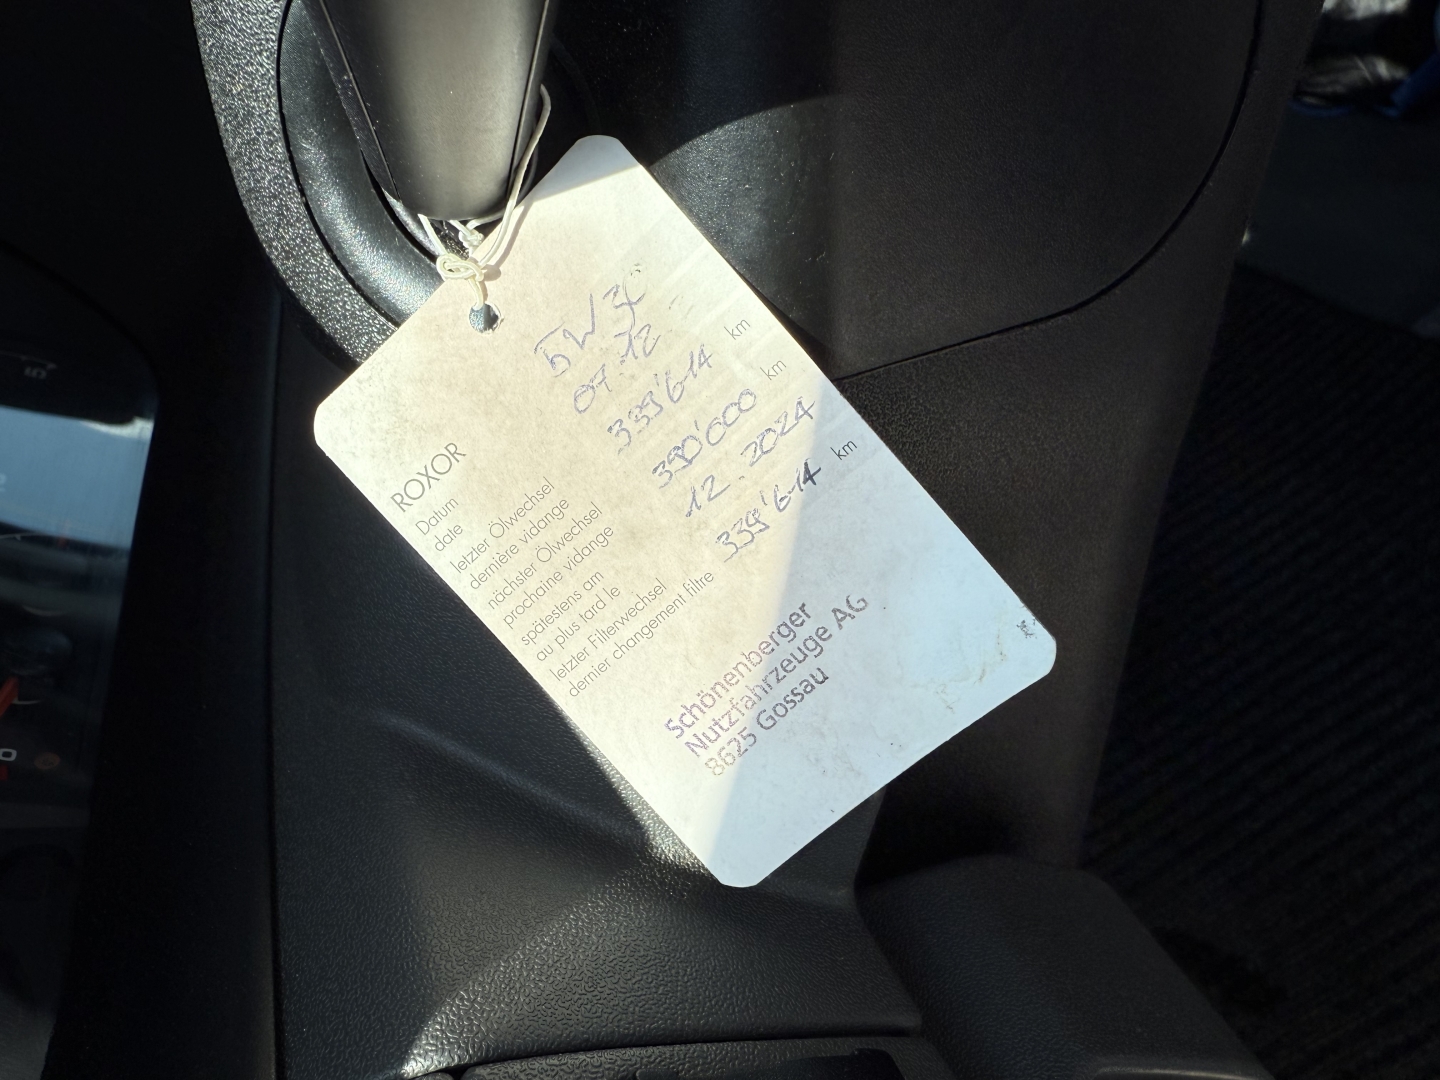 5W30
ROXOR
Datum 07.12
date
letzter Ölwechsel 339'614 km
dernière vidange
nächster Ölwechsel 390'000 km
prochaine vidange
spätestens am 12.2024
au plus tard le
letzter Filterwechsel 339'614 km
dernier changement filtre
Schönenberger
Nutzfahrzeuge AG
8625 Gossau